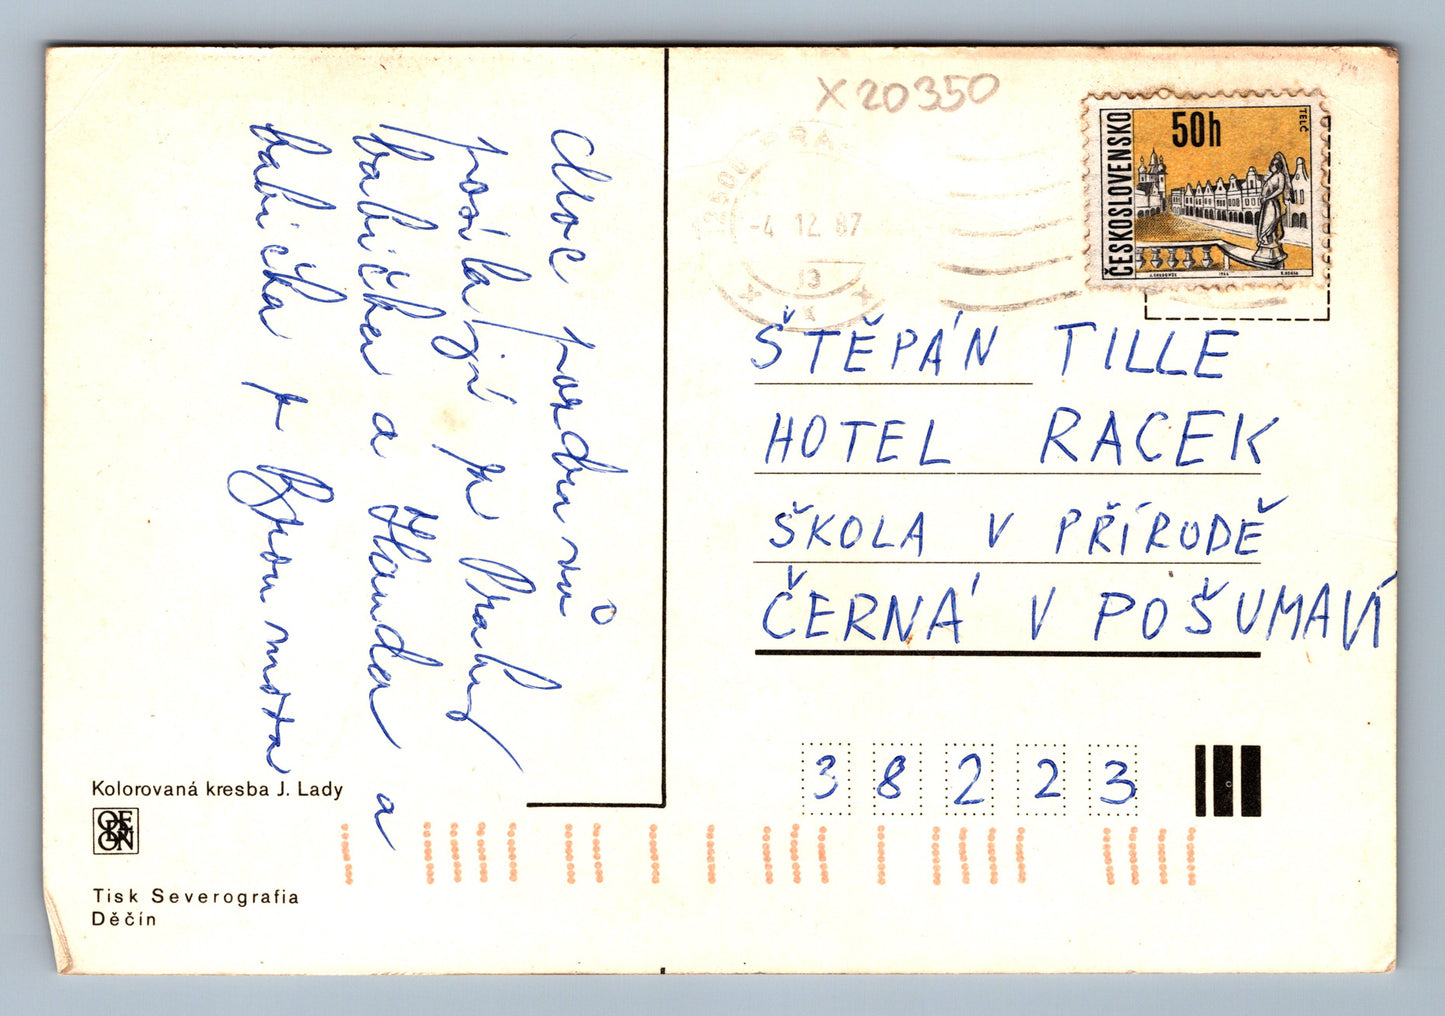 Moc pozdravů
posílají z Prahy
babička a Handa a
babička z Byšmosta
Kolorovaná kresba J. Lady
ORBN
Tisk Severografia
Děčín
X 20350
-4. 12. 87
13
ČESKOSLOVENSKO
50h
TELČ
ŠTĚPÁN TILLE
HOTEL RACEK
ŠKOLA V PŘÍRODĚ
ČERNÁ V POŠUMAVÍ
38223